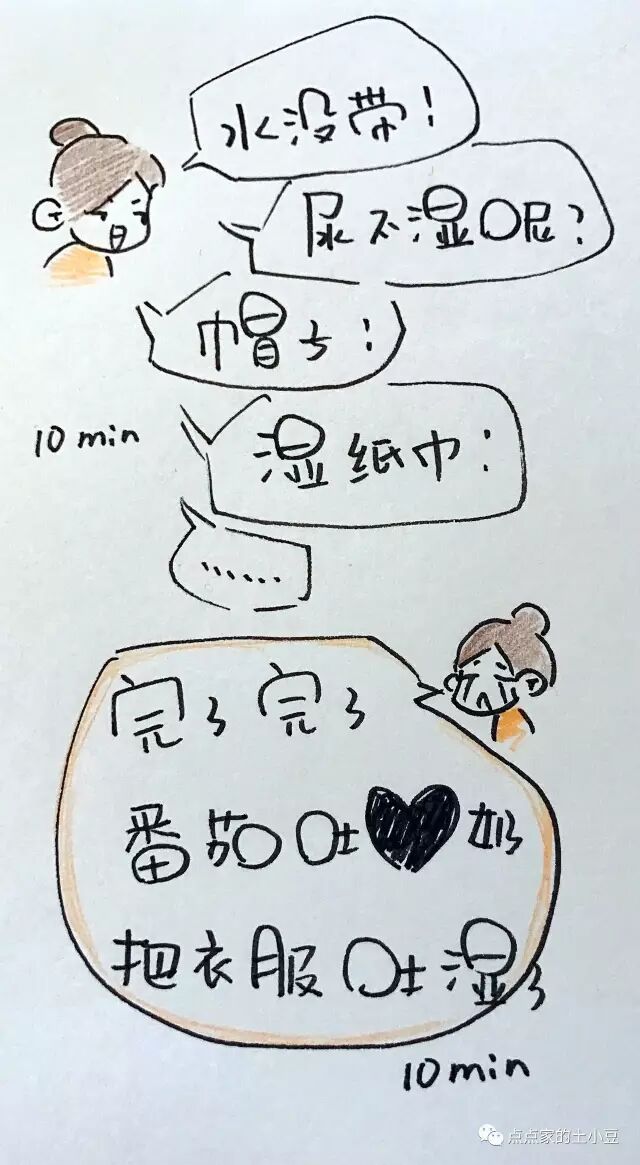 水没带!
尿不湿呢?
帽子!
10 min
湿纸巾!
......
完了完了
番茄吐奶
把衣服吐湿了
10 min
点点家的土小豆